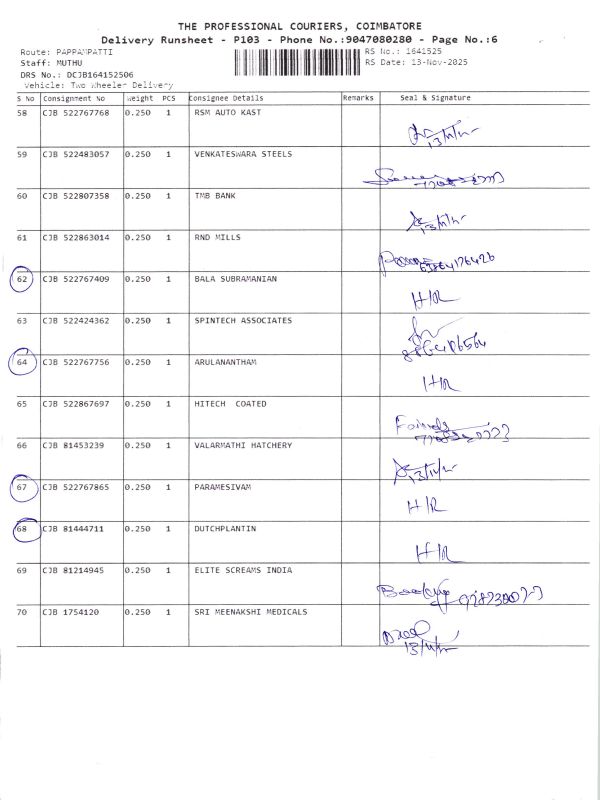 THE PROFESSIONAL COURIERS, COIMBATORE
Delivery Runsheet - P103 - Phone No.:9047080280 - Page No.:6
Route: PAPPAMPATTI RS No.: 1641525
Staff: MUTHU RS Date: 13-Nov-2025
DRS No.: DCJB164152506
Vehicle: Two Wheeler Delivery
S No Consignment No Weight PCS Consignee Details Remarks Seal & Signature
58 CJB 522767768 0.250 1 RSM AUTO KAST
59 CJB 522483057 0.250 1 VENKATESWARA STEELS
60 CJB 522807358 0.250 1 TMB BANK
61 CJB 522863014 0.250 1 RND MILLS
62 CJB 522767409 0.250 1 BALA SUBRAMANIAN
H/R
63 CJB 522424362 0.250 1 SPINTECH ASSOCIATES
64 CJB 522767756 0.250 1 ARULANANTHAM
H/R
65 CJB 522867697 0.250 1 HITECH COATED
66 CJB 81453239 0.250 1 VALARMATHI HATCHERY
67 CJB 522767865 0.250 1 PARAMESIVAM
H/R
68 CJB 81444711 0.250 1 DUTCHPLANTIN
H/R
69 CJB 81214945 0.250 1 ELITE SCREAMS INDIA
70 CJB 1754120 0.250 1 SRI MEENAKSHI MEDICALS